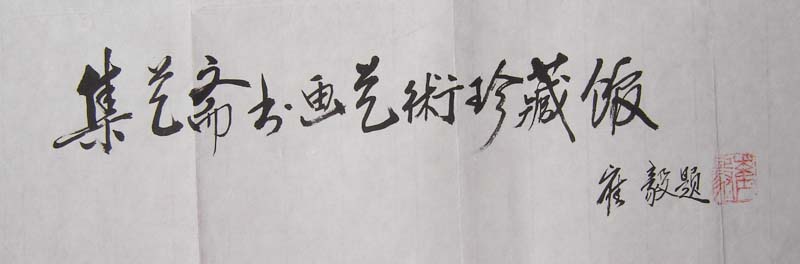 集艺斋书画艺術珍藏
崔毅题